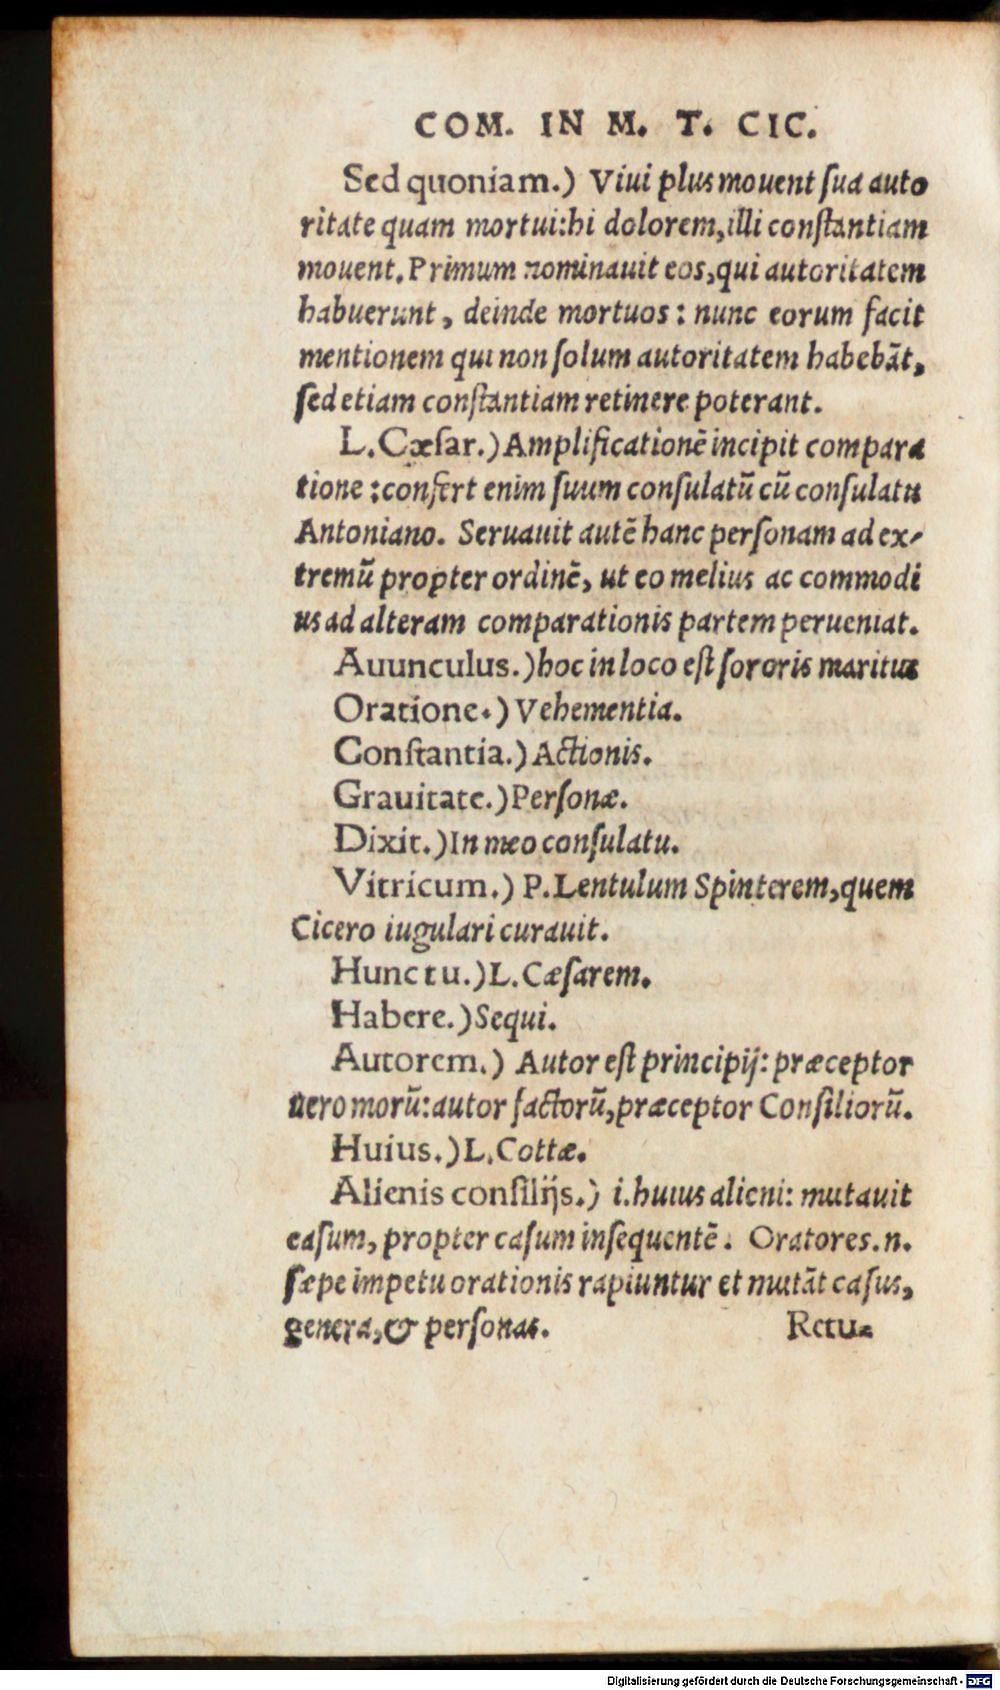 COM. IN M. T. CIC.
Sed quoniam.) Viui plus mouent ſua auto
ritate quam mortui:hi dolorem,illi conſtantiam
mouent.Primum nominauit eos,qui autoritatem
habuerunt, deinde mortuos: nunc eorum facit
mentionem qui non ſolum autoritatem habebāt,
ſed etiam conſtantiam retinere poterant.
L.Cæſar.)Amplificationē incipit compara
tione:confert enim ſuum conſulatū cū conſulatu
Antoniano. Seruauit autē hanc perſonam ad ex-
tremū propter ordinē, ut eo melius ac commodi
us ad alteram comparationis partem perueniat.
Auunculus.)hoc in loco eſt ſororis maritus
Oratione.) Vehementia.
Conſtantia.) Actionis.
Grauitate.)Perſonæ.
Dixit.)In meo conſulatu.
Vitricum.) P.Lentulum Spinterem,quem
Cicero iugulari curauit.
Hunc tu.)L.Cæſarem.
Habere.)Sequi.
Autorem.) Autor eſt principij: præceptor
uero morū:autor factorū,præceptor Conſiliorū.
Huius.)L.Cottæ.
Alienis conſilijs.) i.huius alieni: mutauit
caſum, propter caſum inſequentē. Oratores.n.
ſæpe impetu orationis rapiuntur et mutāt caſus,
genera,& perſonas.
Retu-
Digitalisierung gefördert durch die Deutsche Forschungsgemeinschaft - DFG